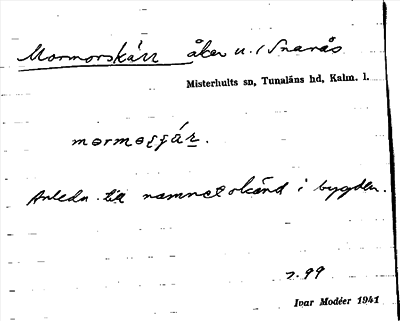 Mormorskärr åker u. / Snarås
Misterhults sn, Tunaläns hd, Kalm. l.
mormosʃár.
Anledn. till namnet okänd i bygden.
s. 99
Ivar Modéer 1941